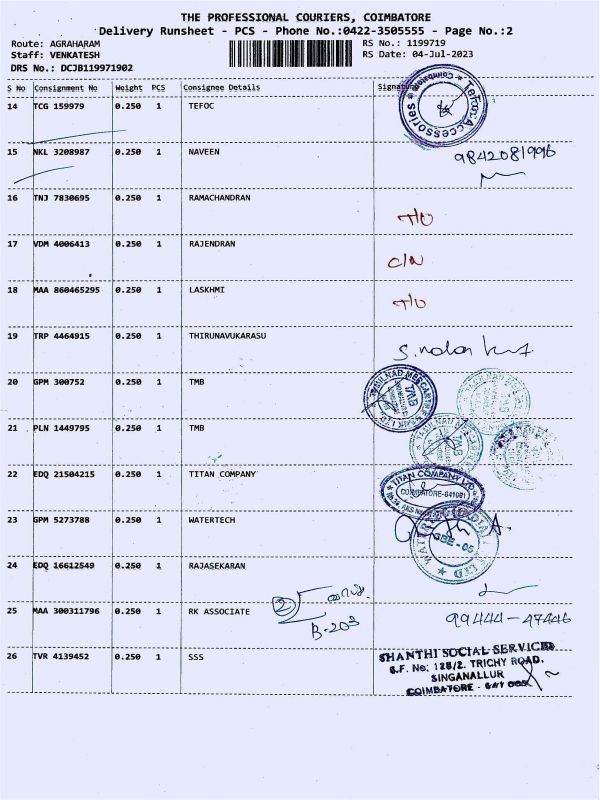 THE PROFESSIONAL COURIERS, COIMBATORE
Delivery Runsheet - PCS - Phone No.:0422-3505555 - Page No.:2
Route: AGRAHARAM
Staff: VENKATESH
DRS No.: DCJB119971902
RS No.: 1199719
RS Date: 04-Jul-2023
S No Consignment No Weight PCS Consignee Details Signature
14 TCG 159979 0.250 1 TEFOC
Tefoc Accessories Coimbatore
15 NKL 3208987 0.250 1 NAVEEN 9842081996
16 TNJ 7830695 0.250 1 RAMACHANDRAN T/O
17 VDM 4006413 0.250 1 RAJENDRAN C/N
18 MAA 860465295 0.250 1 LASKHMI T/O
19 TRP 4464915 0.250 1 THIRUNAVUKARASU
20 GPM 300752 0.250 1 TMB
TAMILNAD MERCANTILE BANK LTD. TMB
21 PLN 1449795 0.250 1 TMB
TMB
22 EDQ 21504215 0.250 1 TITAN COMPANY
TITAN COMPANY LTD
COIMBATORE-641081
23 GPM 5273788 0.250 1 WATERTECH
CBE - 05
24 EDQ 16612549 0.250 1 RAJASEKARAN
25 MAA 300311796 0.250 1 RK ASSOCIATE 2 B-203 99444-47446
26 TVR 4139452 0.250 1 SSS
SHANTHI SOCIAL SERVICES
S.F. No: 128/2. TRICHY ROAD,
SINGANALLUR
COIMBATORE - 641 005